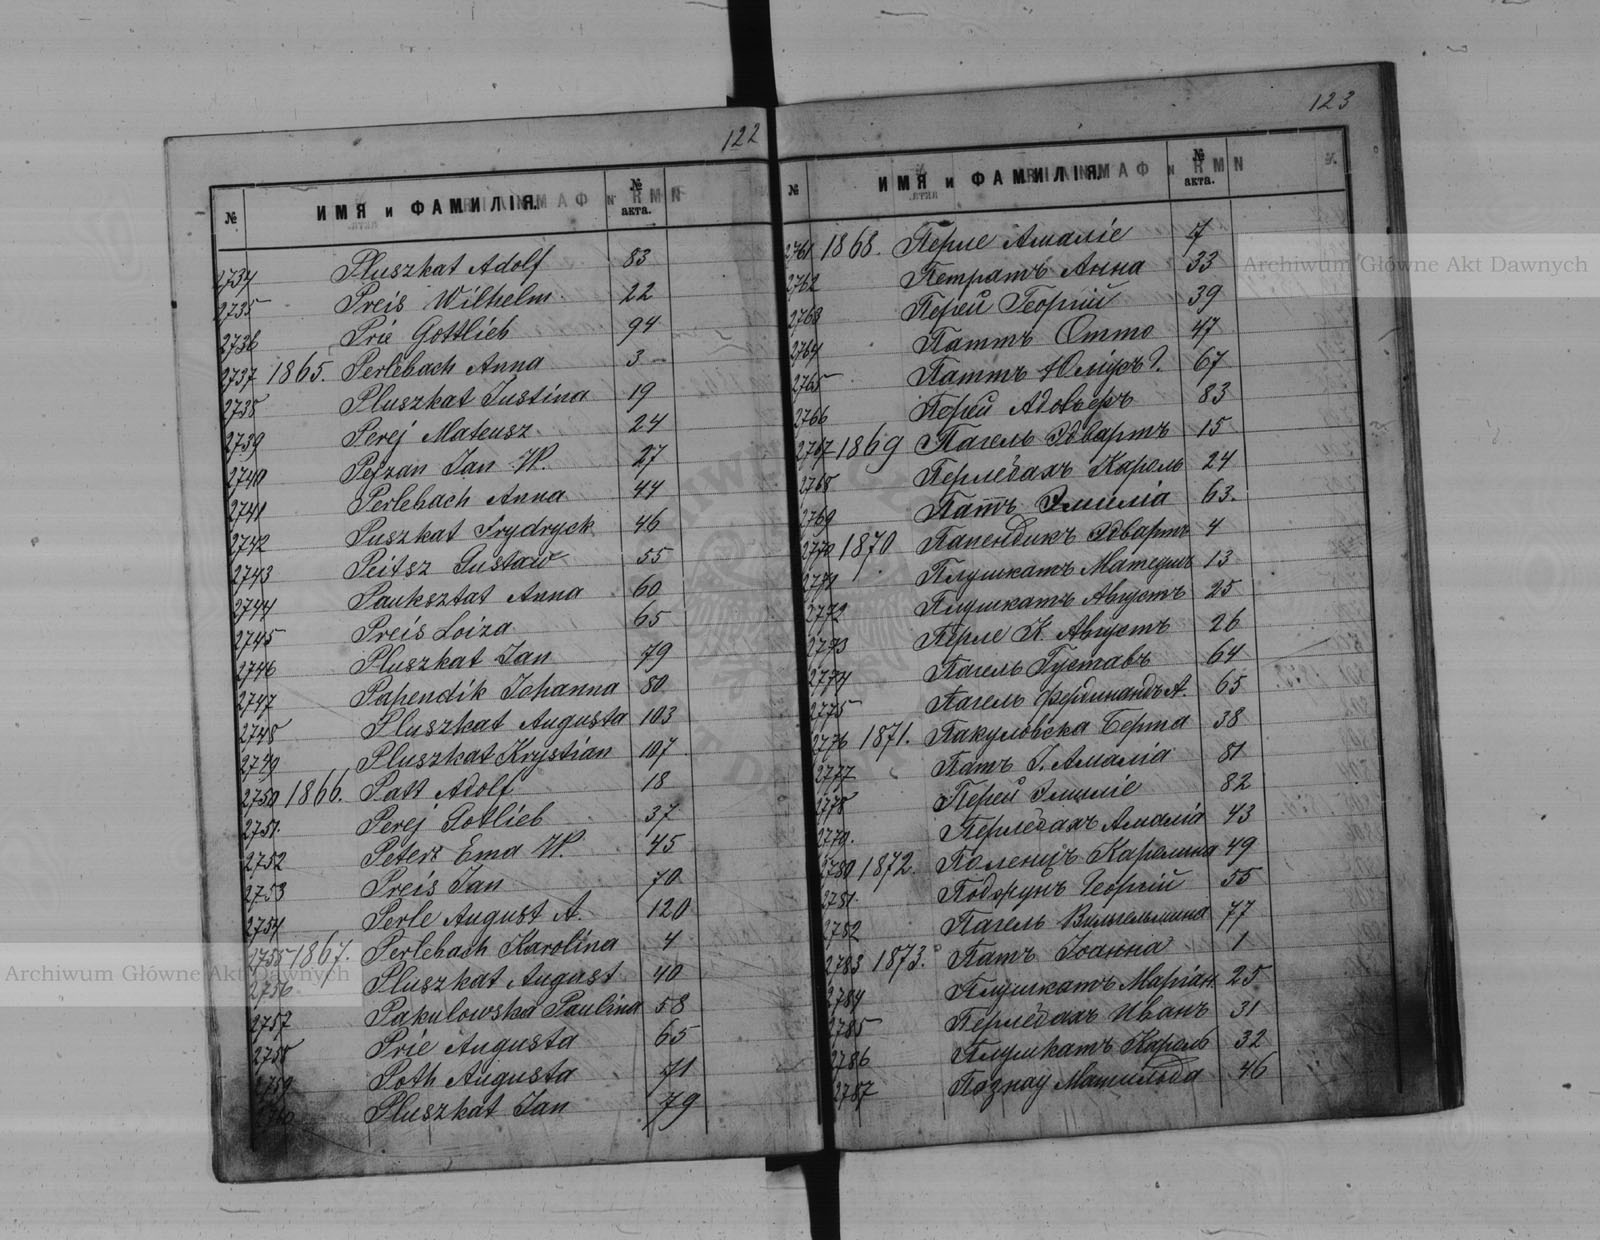 122
№ ИМЯ и ФАМИЛІЯ. № акта.
2734 Pluszkat Adolf 83
2735 Preis Wilhelm 22
2736 Prie Gottlieb 94
2737 1865. Perlebach Anna 3
2738 Pluszkat Justina 19
2739 Perej Mateusz 24
2740 Pejzan Jan W. 27
2741 Perlebach Anna 44
2742 Puszkat Frydryck 46
2743 Peitsz Gustaw 55
2744 Pauksztat Anna 60
2745 Preis Loiza 65
2746 Pluszkat Jan 79
2747 Papendik Johanna 80
2748 Pluszkat Augusta 103
2749 Pluszkat Krystian 107
2750 1866. Patt Adolf 18
2751. Perej Gotlieb 37
2752 Peters Ema W. 45
2753 Preis Jan 70
2754 Perle August A. 120
2755 1867. Perlebach Karolina 4
2756 Pluszkat August 40
2757 Pakulowska Paulina 58
2758 Prie Augusta 65
2759 Poth Augusta 71
Pluszkat Jan 79
123
№ ИМЯ и ФАМИЛІЯ. № акта.
2761 1868. Перле Амаліе 7
2762 Петратъ Анна 33
2763 Перей Георгій 39
2764 Паттъ Отто 47
2765 Паттъ Юліусъ 67
2766 Перей 83
2767 1869 Пагель Эдвартъ 15
2768 Перлебахъ Кароль 24
2769 Патъ Эмилія 63.
2770 1870 Папендикъ Эдвартъ 4
2771 Плушкатъ Матеушъ 13
2772 Плушкатъ Августъ 25
2773 Перле К. Августъ 26
2774 Пагель Густавъ 64
2775 Пагель Фердинандъ А. 65
2776 1871. Пакуловска Берта 38
2777 Патъ Амалія 81
2778 Перей Эмиліе 82
2779. Перлебахъ Амалія 43
2780 1872. Поленцъ Каролина 49
2781. Поджунъ Георгій 55
2782 Пагель Вильгельмина 77
2783 1873. Патъ Іоанна 1
2784 Плушкатъ Маріан. 25
2785 Перлебахъ Иванъ 31
2786 Плушкатъ Кароль 32
2787 Познау Матильда 46
Archiwum Główne Akt Dawnych
Archiwum Główne Akt Dawnych